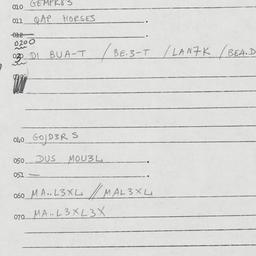 010 GEMPRES
011 QAP HORSES
012
0200
DI BUA-T / BE.3-T / LAN7K / BEA.D
040 GOJD3R S
050 DUS MOU3L
051 —
060 MA..L3XL // MAL3XL
070 MA..L3XL3X